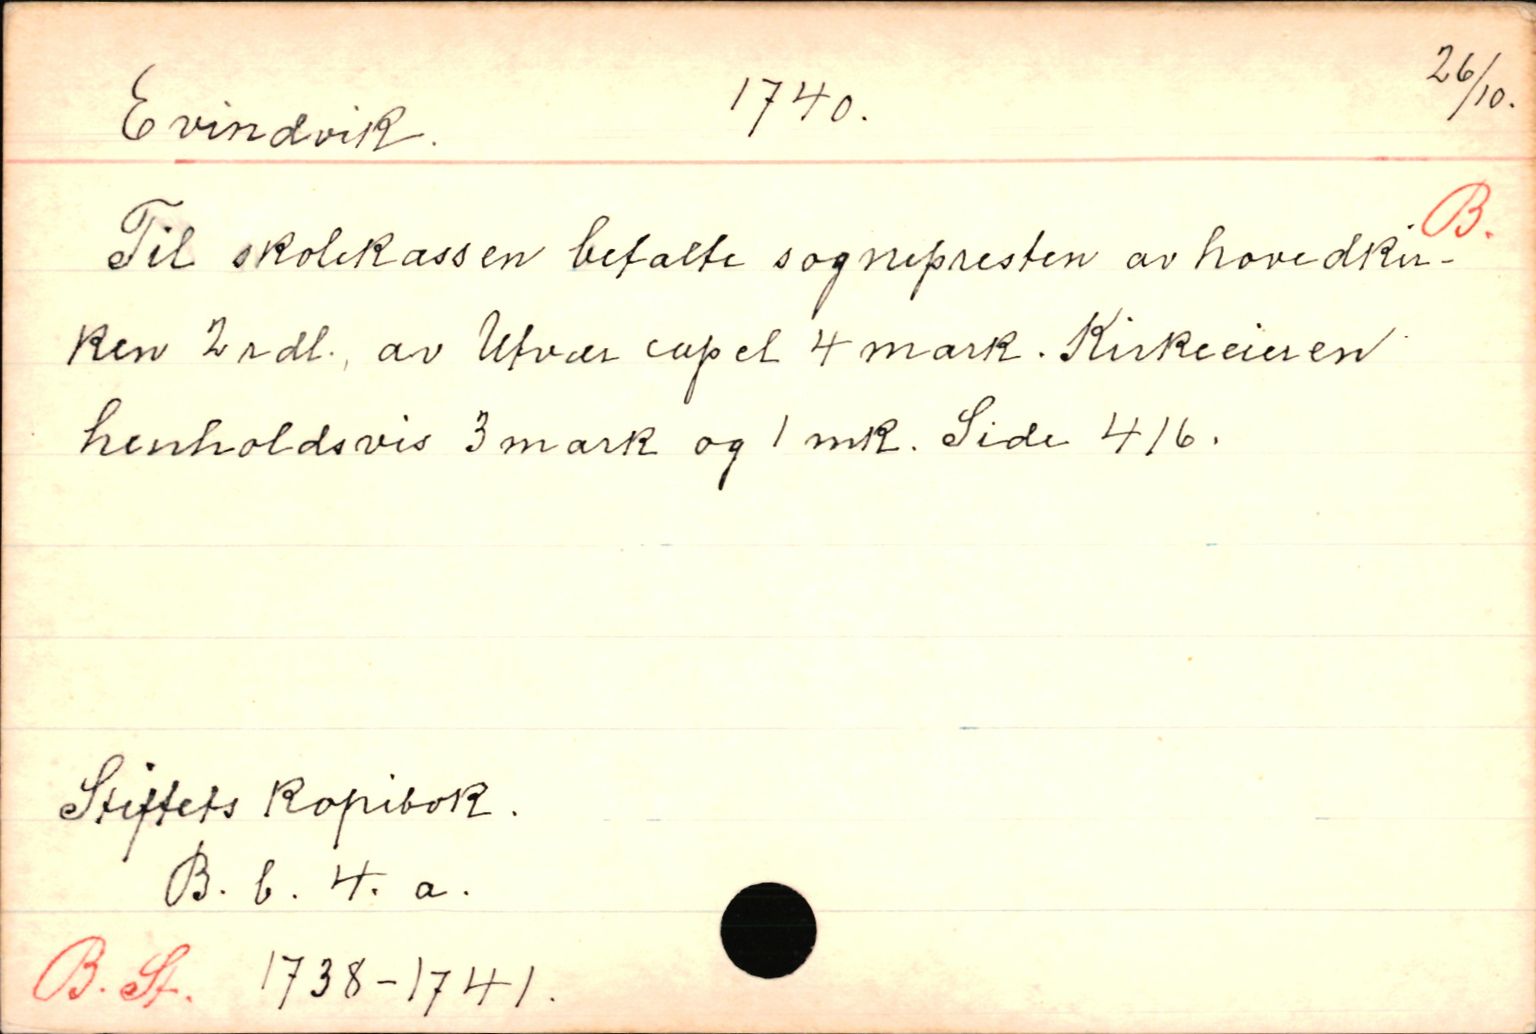 Evindvik. 1740. 26/10.
B.
Til skolekassen betalte sognepresten av hovedkir-
ken 2 rdl., av Utvær capel 4 mark. Kirkeeieren
henholdsvis 3 mark og 1 mk. Side 416.
Stiftets kopibok.
B. b. 4. a.
B. St. 1738-1741.